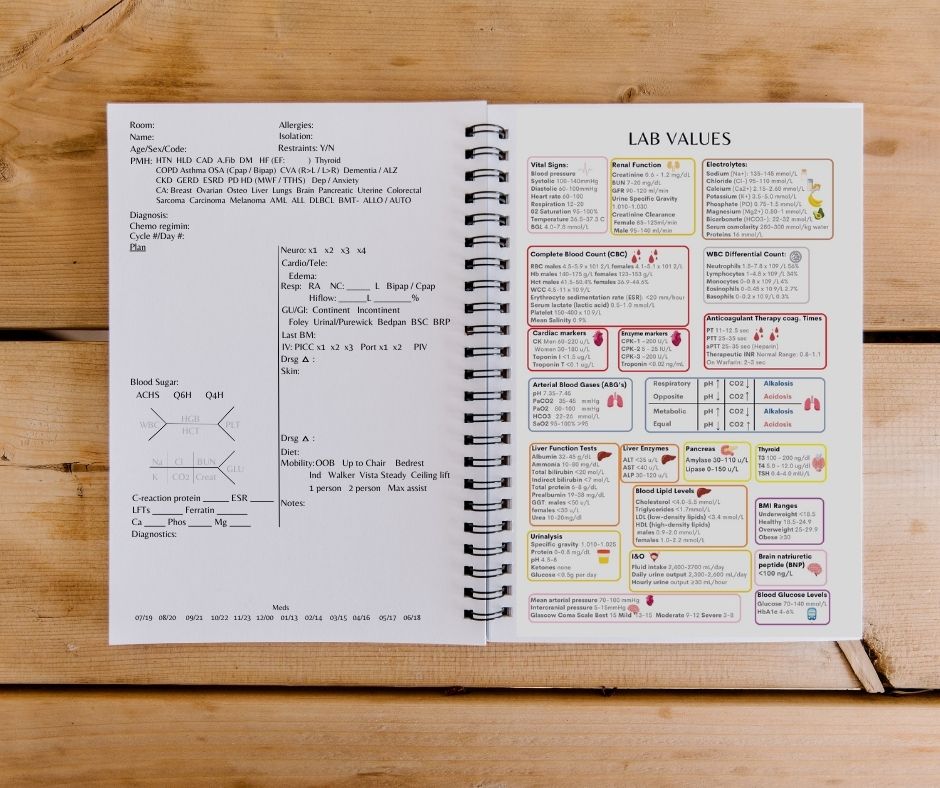 Room:
Allergies:
Name:
Isolation:
Age/Sex/Code:
Restraints: Y/N
PMH: HTN HLD CAD A.Fib DM HF (EF: ) Thyroid
COPD Asthma OSA (Cpap / Bipap) CVA (R>L / L>R) Dementia / ALZ
CKD GERD ESRD PD HD (MWF / TTHS) Dep / Anxiety
CA: Breast Ovarian Osteo Liver Lungs Brain Pancreatic Uterine Colorectal
Sarcoma Carcinoma Melanoma AML ALL DLBCL BMT- ALLO / AUTO
Diagnosis:
Chemo regimin:
Cycle #/Day #:
Plan
Neuro: x1 x2 x3 x4
Cardio/Tele:
Edema:
Resp: RA NC: _____ L Bipap / Cpap
Hiflow: ______L ________%
GU/GI: Continent Incontinent
Foley Urinal/Purewick Bedpan BSC BRP
Last BM:
IV: PICC x1 x2 x3 Port x1 x2 PIV
Drsg Δ :
Skin:
Blood Sugar:
ACHS Q6H Q4H
WBC HGB PLT
HCT
Na Cl BUN GLU
K CO2 Creat
Drsg Δ :
Diet:
Mobility:OOB Up to Chair Bedrest
Ind Walker Vista Steady Ceiling lift
1 person 2 person Max assist
C-reaction protein ______ ESR _____
LFTs _____ Ferratin _____
Ca ____ Phos ____ Mg ____
Notes:
Diagnostics:
Meds
07/19 08/20 09/21 10/22 11/23 12/00 01/13 02/14 03/15 04/16 05/17 06/18
LAB VALUES
Vital Signs:
Blood pressure
Systolic 100-140mmHg
Diastolic 60-100mmHg
Heart rate 60-100
Respiration 12-20
O2 Saturation 95-100%
Temperature 36.5-37.3 C
BGL 4.0-7.8 mmol/L
Renal Function
Creatinine 0.6 - 1.2 mg/dL
BUN 7-20 mg/dL
GFR 90-120 ml/min
Urine Specific Gravity
1.010-1.030
Creatinine Clearance
Female 85-125ml/min
Male 95-140 ml/min
Electrolytes:
Sodium (Na+): 135-145 mmol/L
Chloride (Cl-) 95-110 mmol/L
Calcium (Ca2+) 2.15-2.60 mmol/L
Potassium (K+) 3.5-5.0 mmol/L
Phosphate (PO) 0.75-1.5 mmol/L
Magnesium (Mg2+) 0.80-1 mmol/L
Bicarbonate (HCO3-): 22-32 mmol/L
Serum osmolarity 280-300 mmol/kg water
Proteins 16 mmol/L
Complete Blood Count (CBC)
RBC males 4.5-5.9 x 101 2/L females 4.1-5.1 x 101 2/L
Hb males 140-175 g/L females 123-153 g/L
Hct males 41.5-50.4% females 36.9-44.6%
WCC 4.5-11 x 10 9/L
Erythrocyte sedimentation rate (ESR): <20 mm/hour
Serum lactate (lactic acid) 0.5-1.0 mmol/L
Platelet 150-400 x 10 9/L
Mean Salinity 0.9%
WBC Differential Count:
Neutrophils 1.5-7.8 x 109 /L 56%
Lymphocytes 1-4.8 x 109 /L 34%
Monocytes 0-0.8 x 109/L 4%
Eosinophils 0-0.45 x 10 9/L 2.7%
Basophils 0-0.2 x 10 9/L 0.3%
Anticoagulant Therapy coag. Times
PT 11-12.5 sec
PTT 25-35 sec
aPTT 25-35 sec (Heparin)
Therapeutic INR Normal Range: 0.8-1.1
On Warfarin: 2-3 sec
Cardiac markers
CK Men 60-220 u/L
Women 30-180 u/L
Toponin I <1.5 ug/L
Toponin T <0.1 ug/L
Enzyme markers
CPK-1 - 200 U/L
CPK-2 5 - 25 IU/L
CPK-3 - 200 U/L
Troponin <0.02 ng/mL
Arterial Blood Gases (ABG's)
pH 7.35-7.45
PaCO2 35-45 mmHg
PaO2 80-100 mmHg
HCO3 22-26 mmol/L
SaO2 95-100% >95
Respiratory pH ↑ CO2 ↓ Alkalosis
Opposite pH ↓ CO2 ↑ Acidosis
Metabolic pH ↑ CO2 ↑ Alkalosis
Equal pH ↓ CO2 ↓ Acidosis
Liver Function Tests
Albumin 32-45 g/dL
Ammonia 10-80 mg/dL
Total bilirubin <20 mmol/L
Indirect bilirubin <7 mol/L
Total protein 6-8 g/dL
Prealbumin 19-38 mg/dL
GGT: males <50 u/L
females <30 u/L
Urea 10-20mg/dl
Liver Enzymes
ALT <35 u/L
AST <40 u/L
ALP 30-120 u/L
Pancreas
Amylase 30-110 u/L
Lipase 0-150 u/L
Thyroid
T3 100 - 200 ng/dl
T4 5.0 - 12.0 ug/dl
TSH 0.4-4.0 mIU/L
Blood Lipid Levels
Cholesterol <4.0-5.5 mmol/L
Triglycerides <1.7mmol/L
LDL (low-density lipids) <3.4 mmol/L
HDL (high-density lipids)
males 0.9-2.0 mmol/L
females 1.0-2.2 mmol/L
BMI Ranges
Underweight <18.5
Healthy 18.5-24.9
Overweight 25-29.9
Obese ≥30
Urinalysis
Specific gravity 1.010-1.025
Protein 0-0.8 mg/dL
pH 4.5-8
Ketones none
Glucose <0.5g per day
I&O
Fluid intake 2,400-2700 mL/day
Daily urine output 2,300-2,600 mL/day
Hourly urine output ≥30 mL/hour
Brain natriuretic
peptide (BNP)
<100 ng/L
Mean arterial pressure 70-100 mmHg
Intercranial pressure 5-15mmHg
Glascow Coma Scale Best 15 Mild 13-15 Moderate 9-12 Severe 3-8
Blood Glucose Levels
Glucose 70-140 mmol/L
HbA1c 4-6%